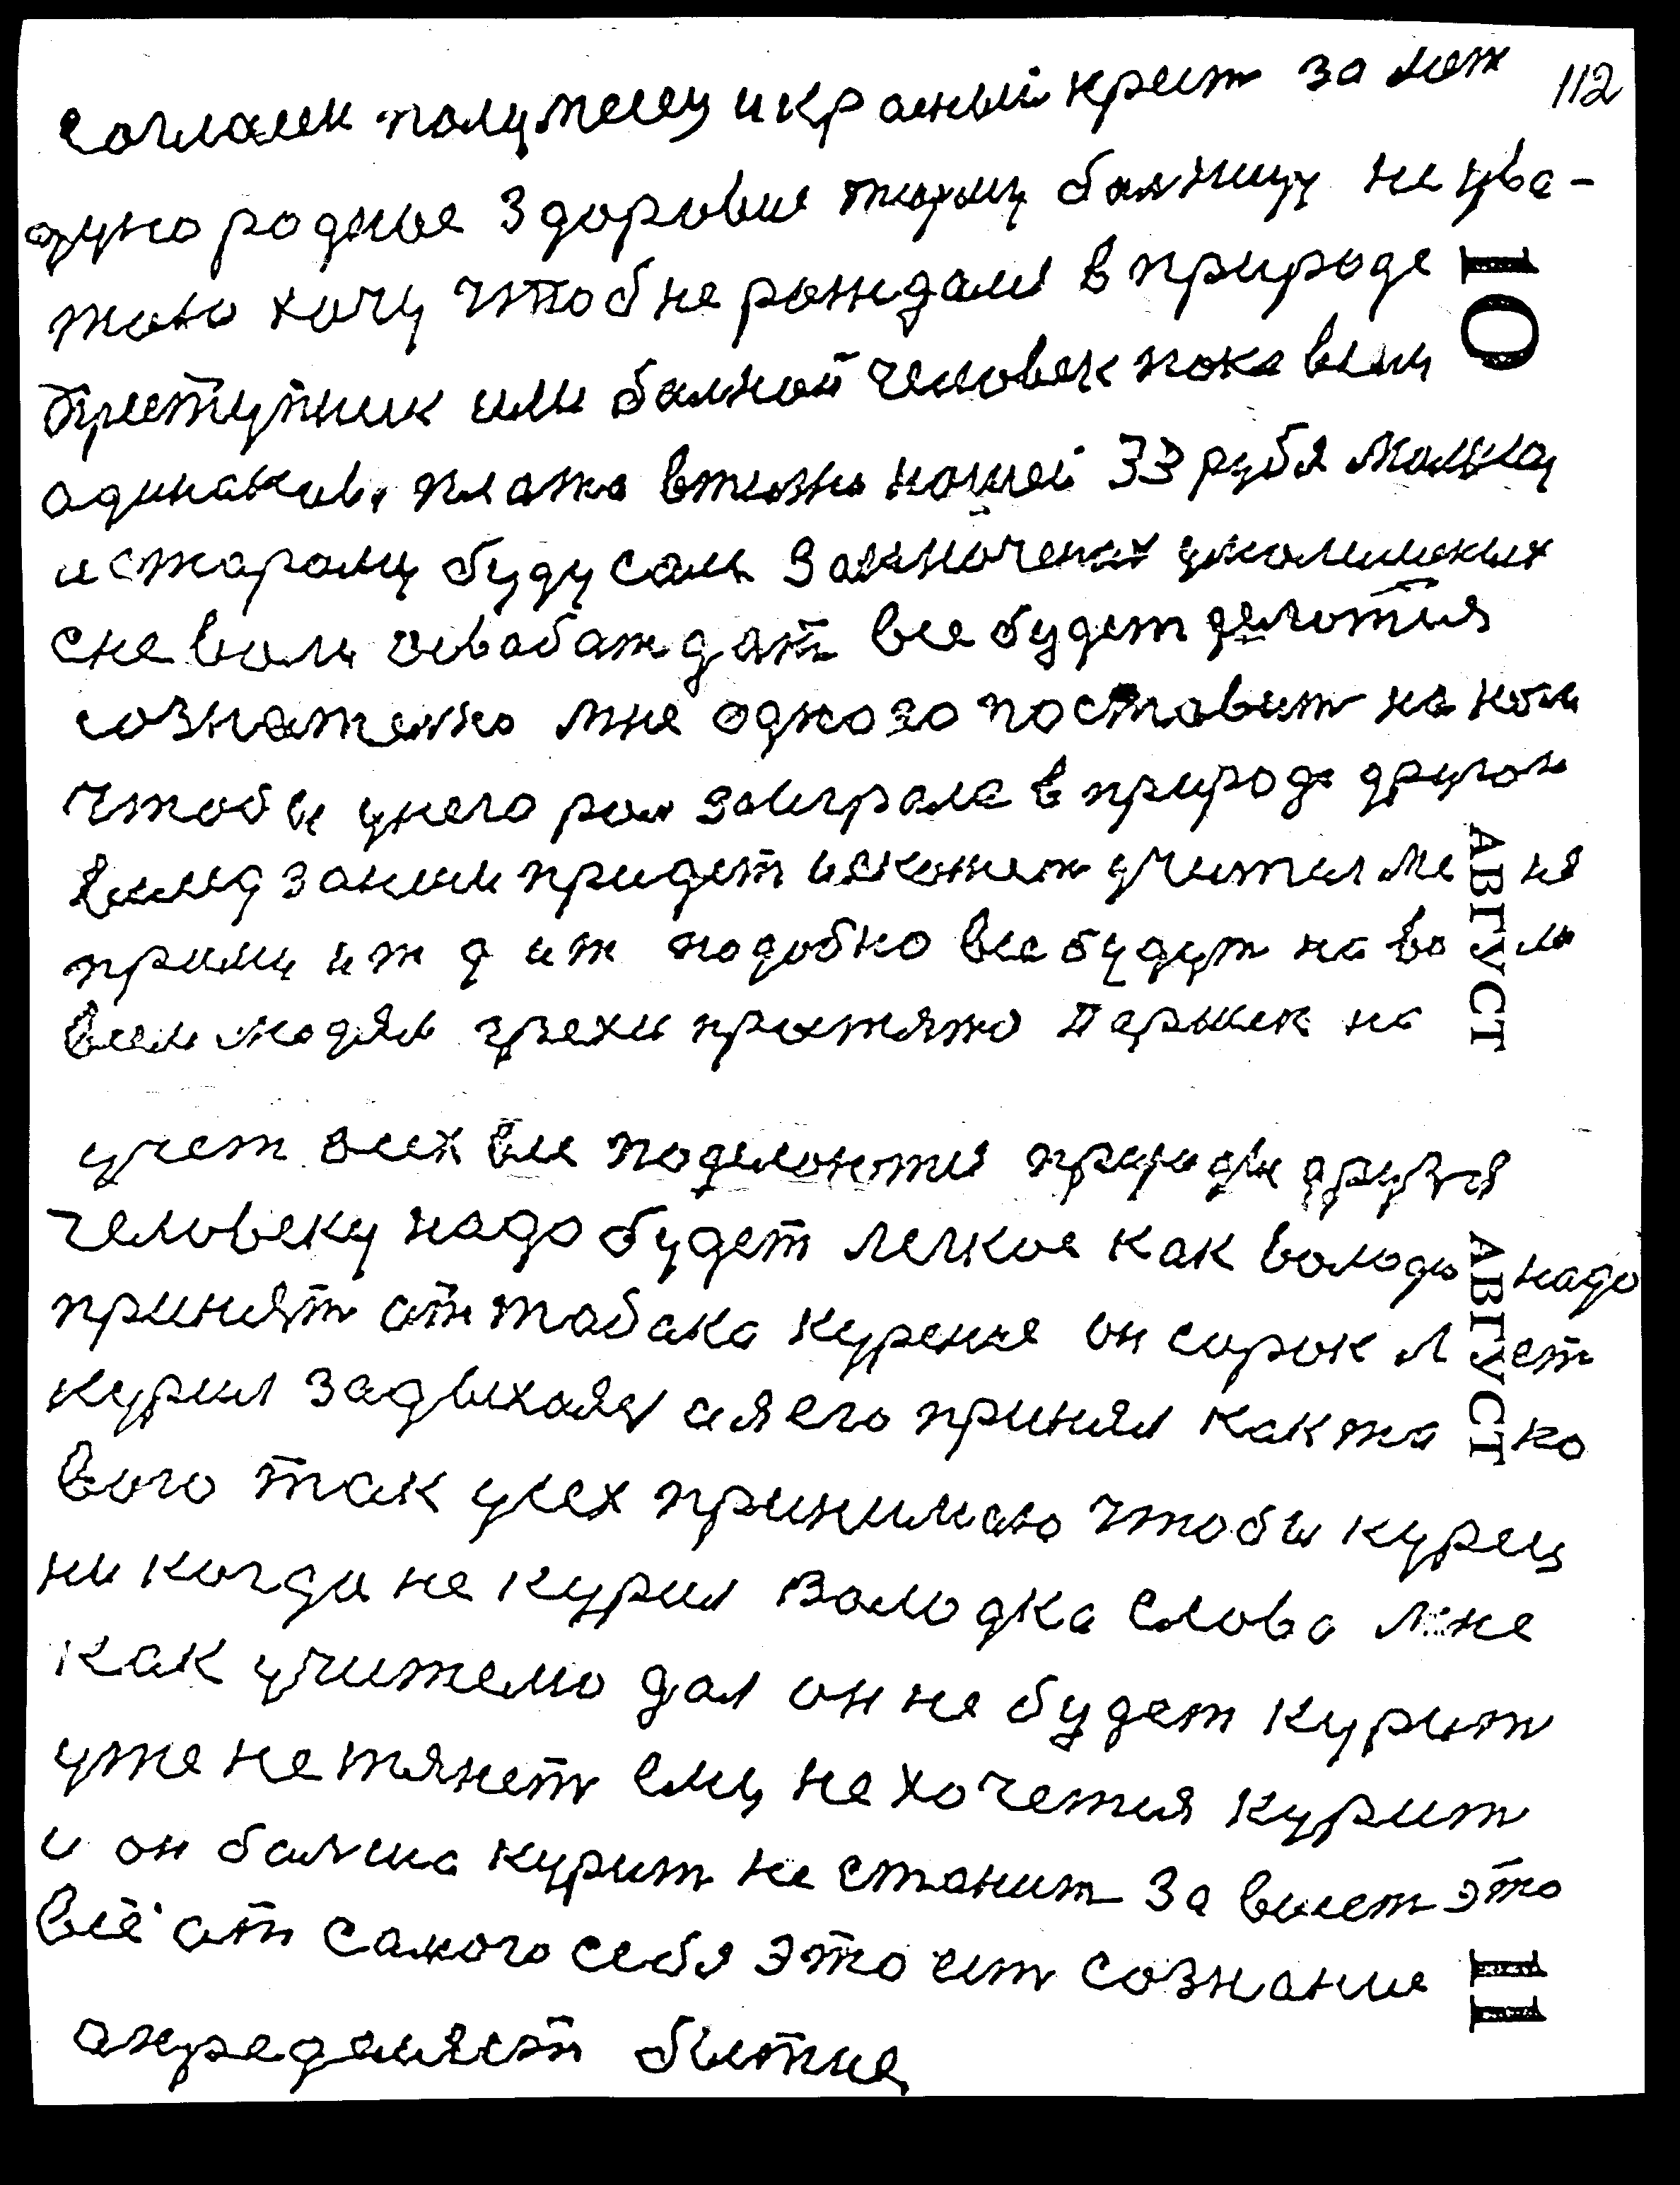 112
согласен полумесец и красный крест за меж
дуна родные здоровие тюрму балницу не ува-
жаю хочу чтоб не рождался в природе
приступник или балной человек пока всем
одинаков. плата в жизни нашей 33 рубля
и старому буду сам заключеных умолишеных
с не воли освабаждат все будет делатся
сознателно мне одно за поставит на ноги
чтобы у него рол заиграла в природе другом
вслед за ним придет и скажет учител меня
прими и т д и т подобно все будут на воли
всем людям грехи прощяю Паршек на
учет всех все поделаются природы друзя
человеку надо будет легкое как володи надо
принят от табака курение он сорок лет
курил задыхался а я его принял как тако
вого так усех принимаю чтобы курец
ни когда не курил Валодка слово мне
как учителю дал он не будет курит
уже не тянет ему не хочется курит
и он балша курит не станит завист это
всё от самого себя это ест сознание
апределяет бытие
10
АВГУСТ
АВГУСТ
11